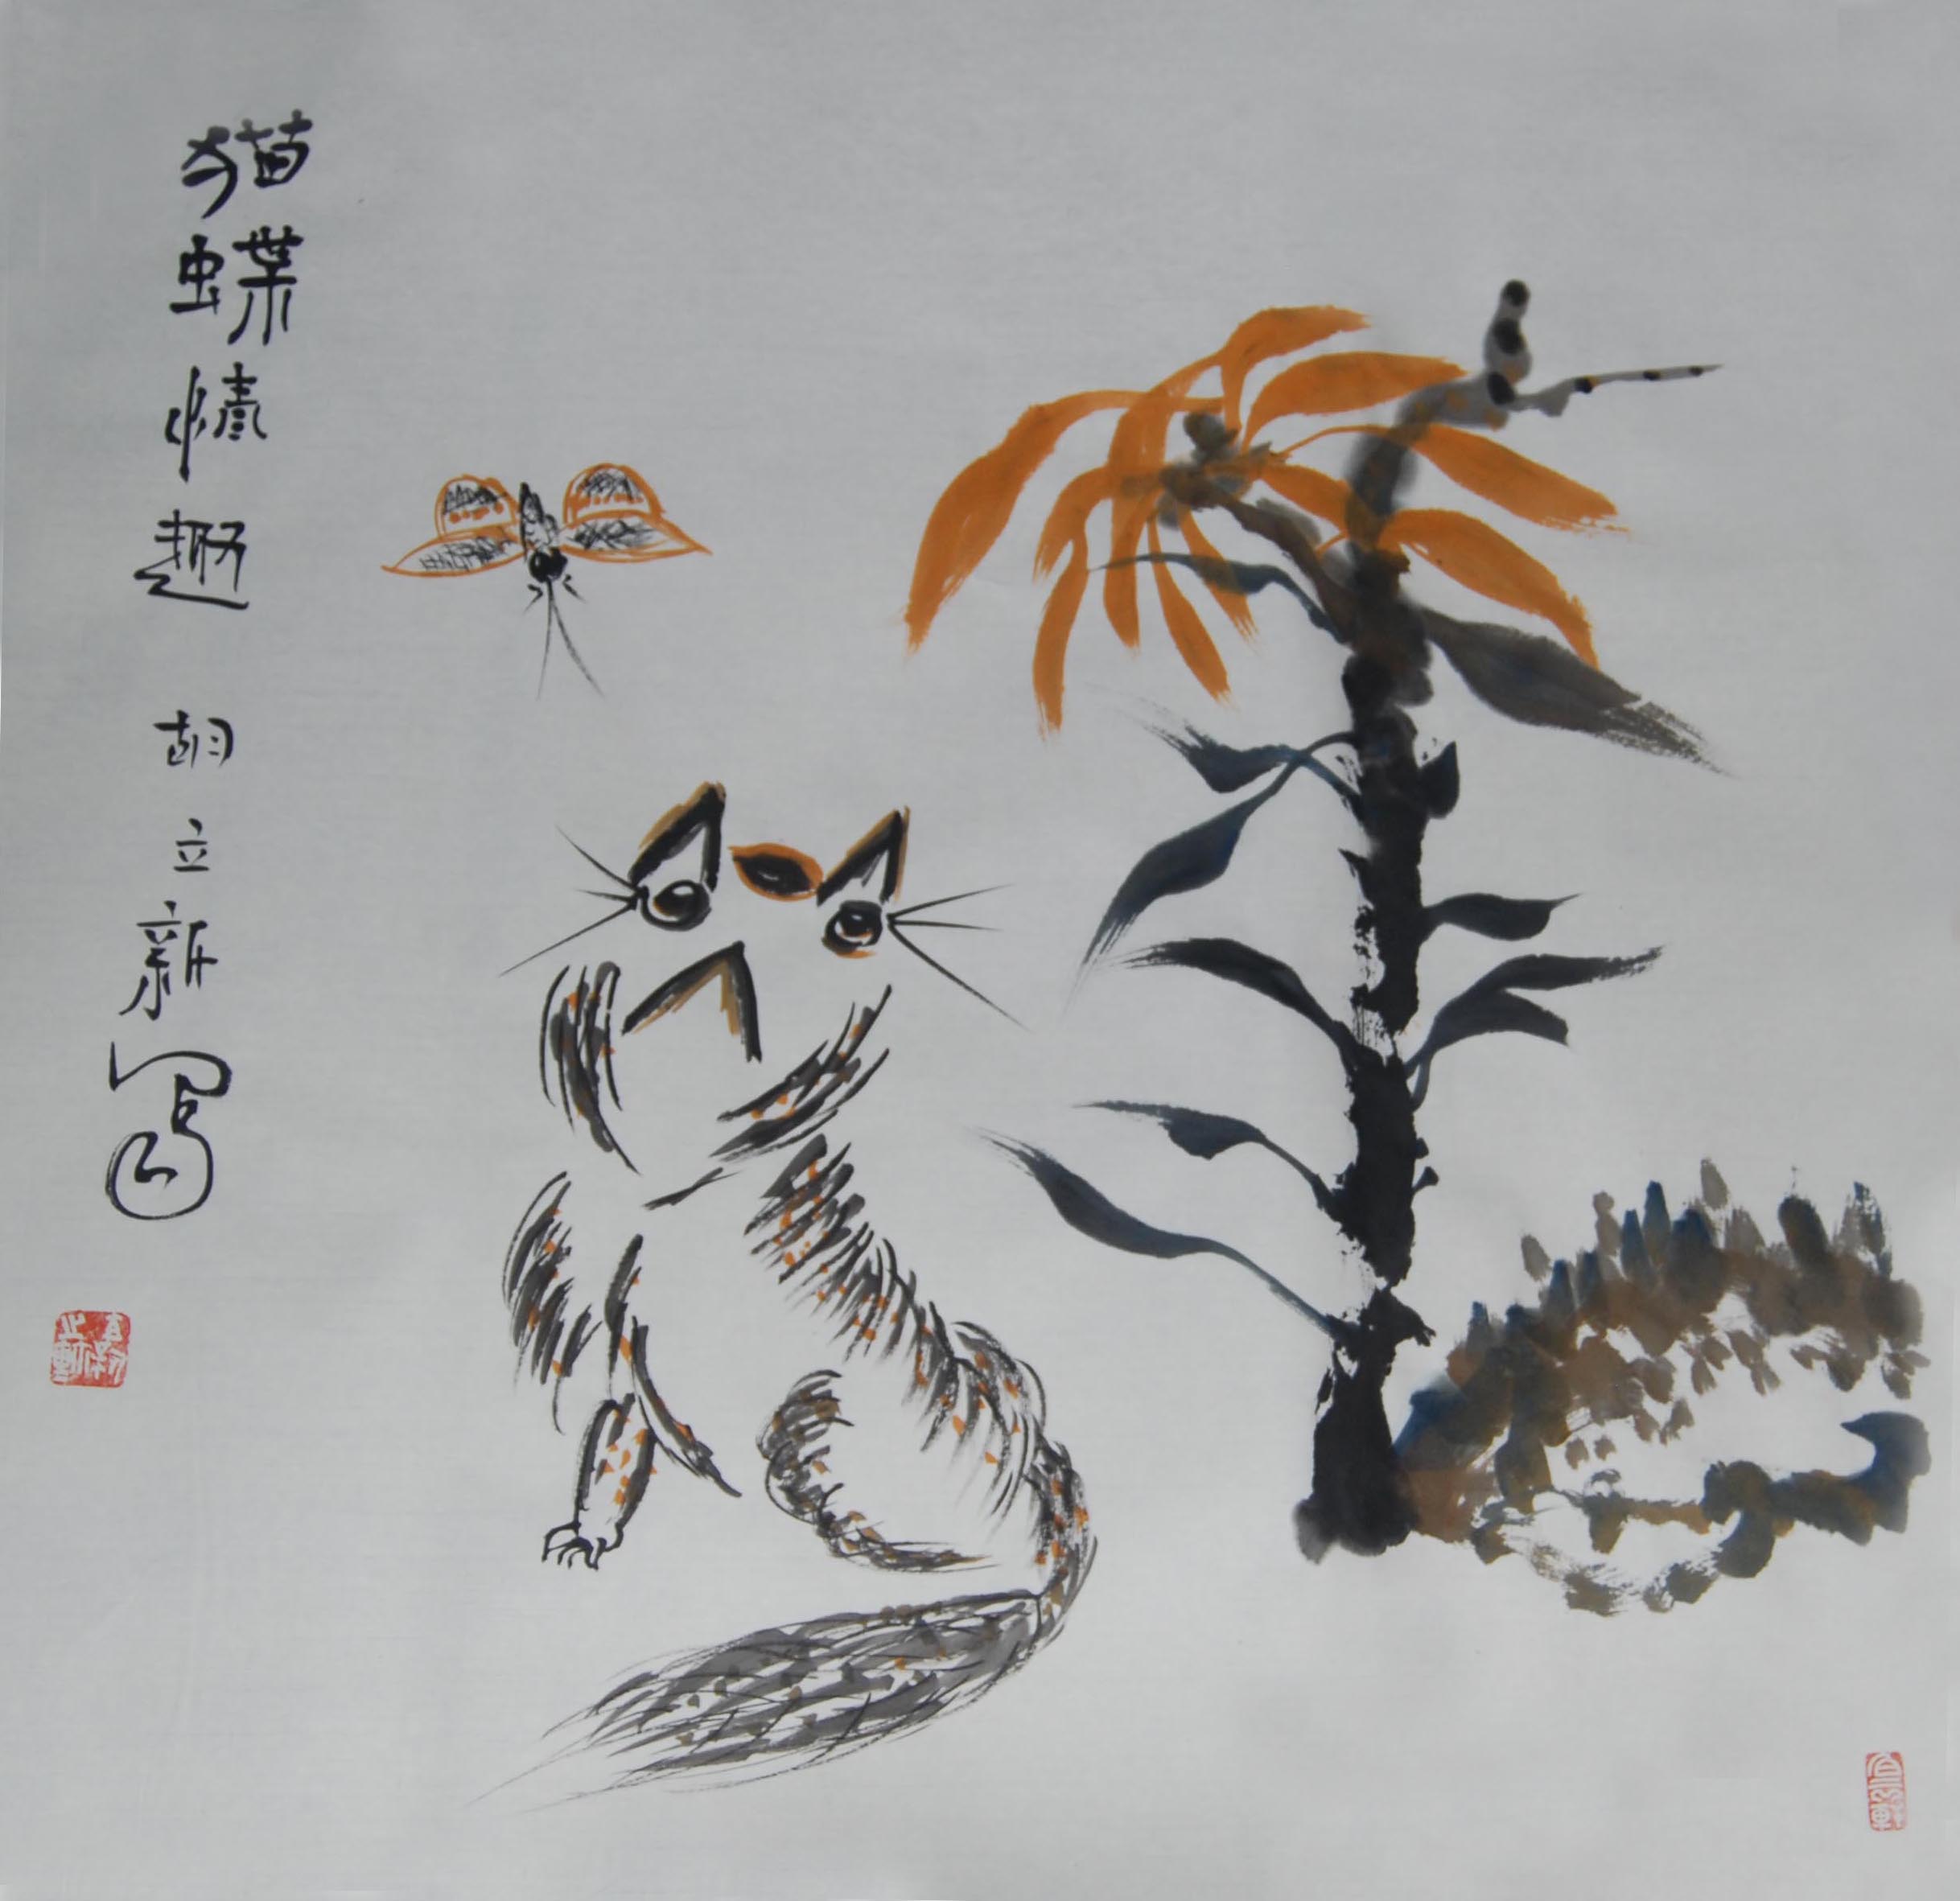 猫蝶情趣 胡立新写